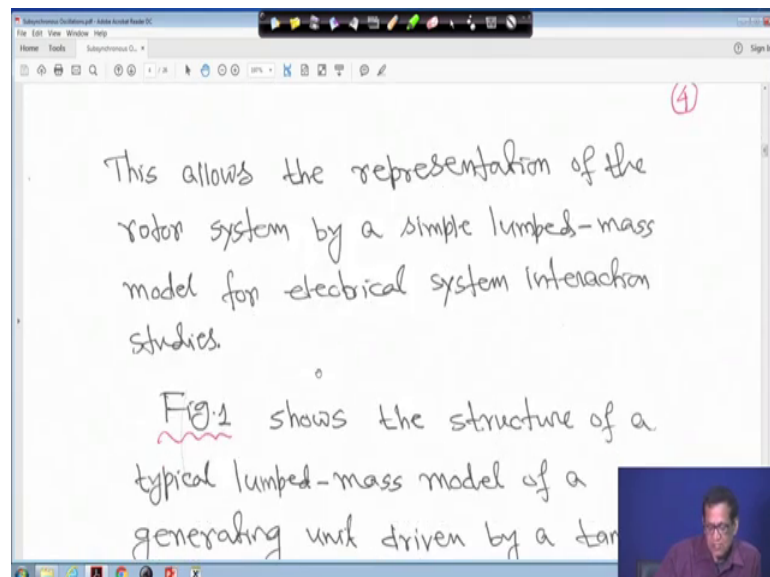 Subsynchronous Oscillations.pdf - Adobe Acrobat Reader DC
File Edit View Window Help
Home Tools Subsynchronous O... ×
Sign I
④
This allows the representation of the
rotor system by a simple lumped-mass
model for electrical system interaction
studies.
Fig.1 shows the structure of a
typical lumped-mass model of a
generating unit driven by a tan